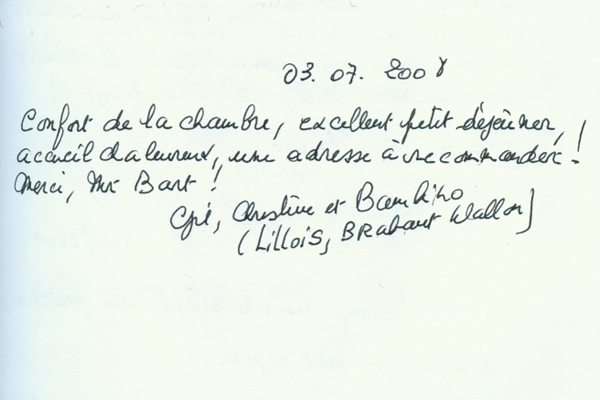 03. 07. 2008
Confort de la chambre, excellent petit déjeuner,
accueil chaleureux, une adresse à recommander !
Merci, Mr Bart !
Christine et Bambino
(Lillois, Brabant Wallon)